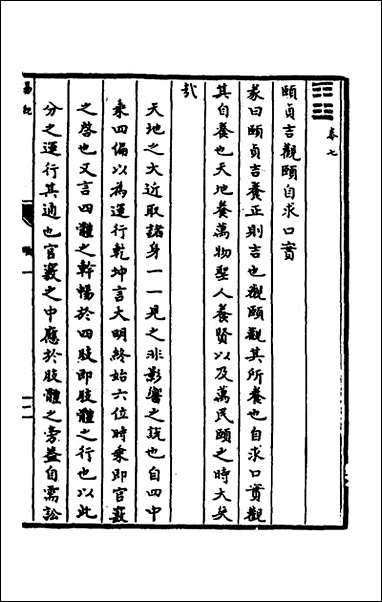 卷七
頤貞吉觀頤自求口實
彖曰頤貞吉養正則吉也觀頤觀其所養也自求口實觀
其自養也天地養萬物聖人養賢以及萬民頤之時大矣
哉
天地之大近取諸身一一見之非影響之説也自四中
乘四偏以為運行乾坤言大明終始六位時乘即官竅
之啓也又言四體之幹暢於四肢即肢體之行也以此
分之運行其適也官竅之中應於肢體之旁葢自需訟